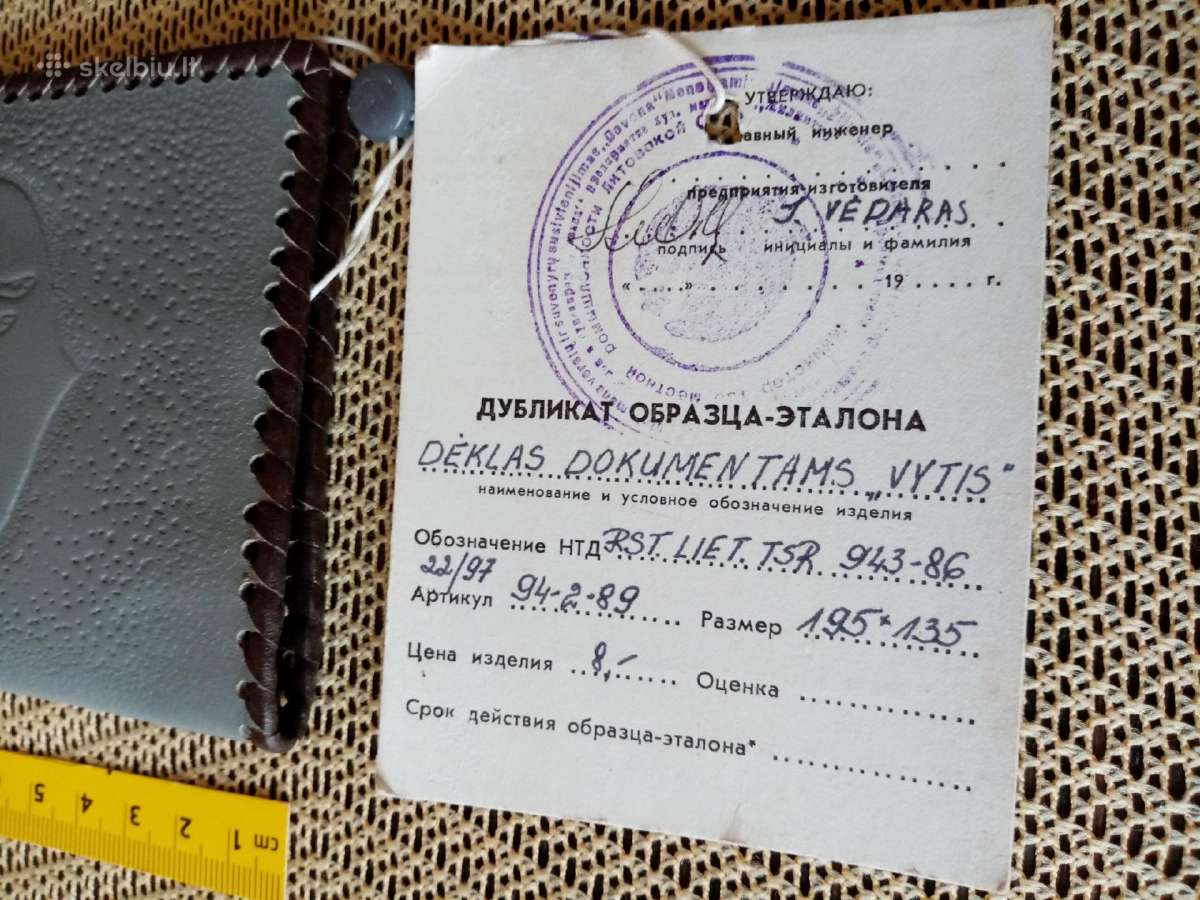 skelbiu.lt
УТВЕРЖДАЮ:
инженер
предприятия-изготовителя
J. VĖDARAS
подпись инициалы и фамилия
« .... » ............ 19 .... г.
ДУБЛИКАТ ОБРАЗЦА-ЭТАЛОНА
DĖKLAS DOKUMENTAMS „VYTIS"
наименование и условное обозначение изделия
Обозначение НТД RST LIET. TSR 943-86
22/97
Артикул 94-2-89 Размер 195×135
Цена изделия 8,- Оценка
Срок действия образца-эталона*
5 4 3 2 1 cm